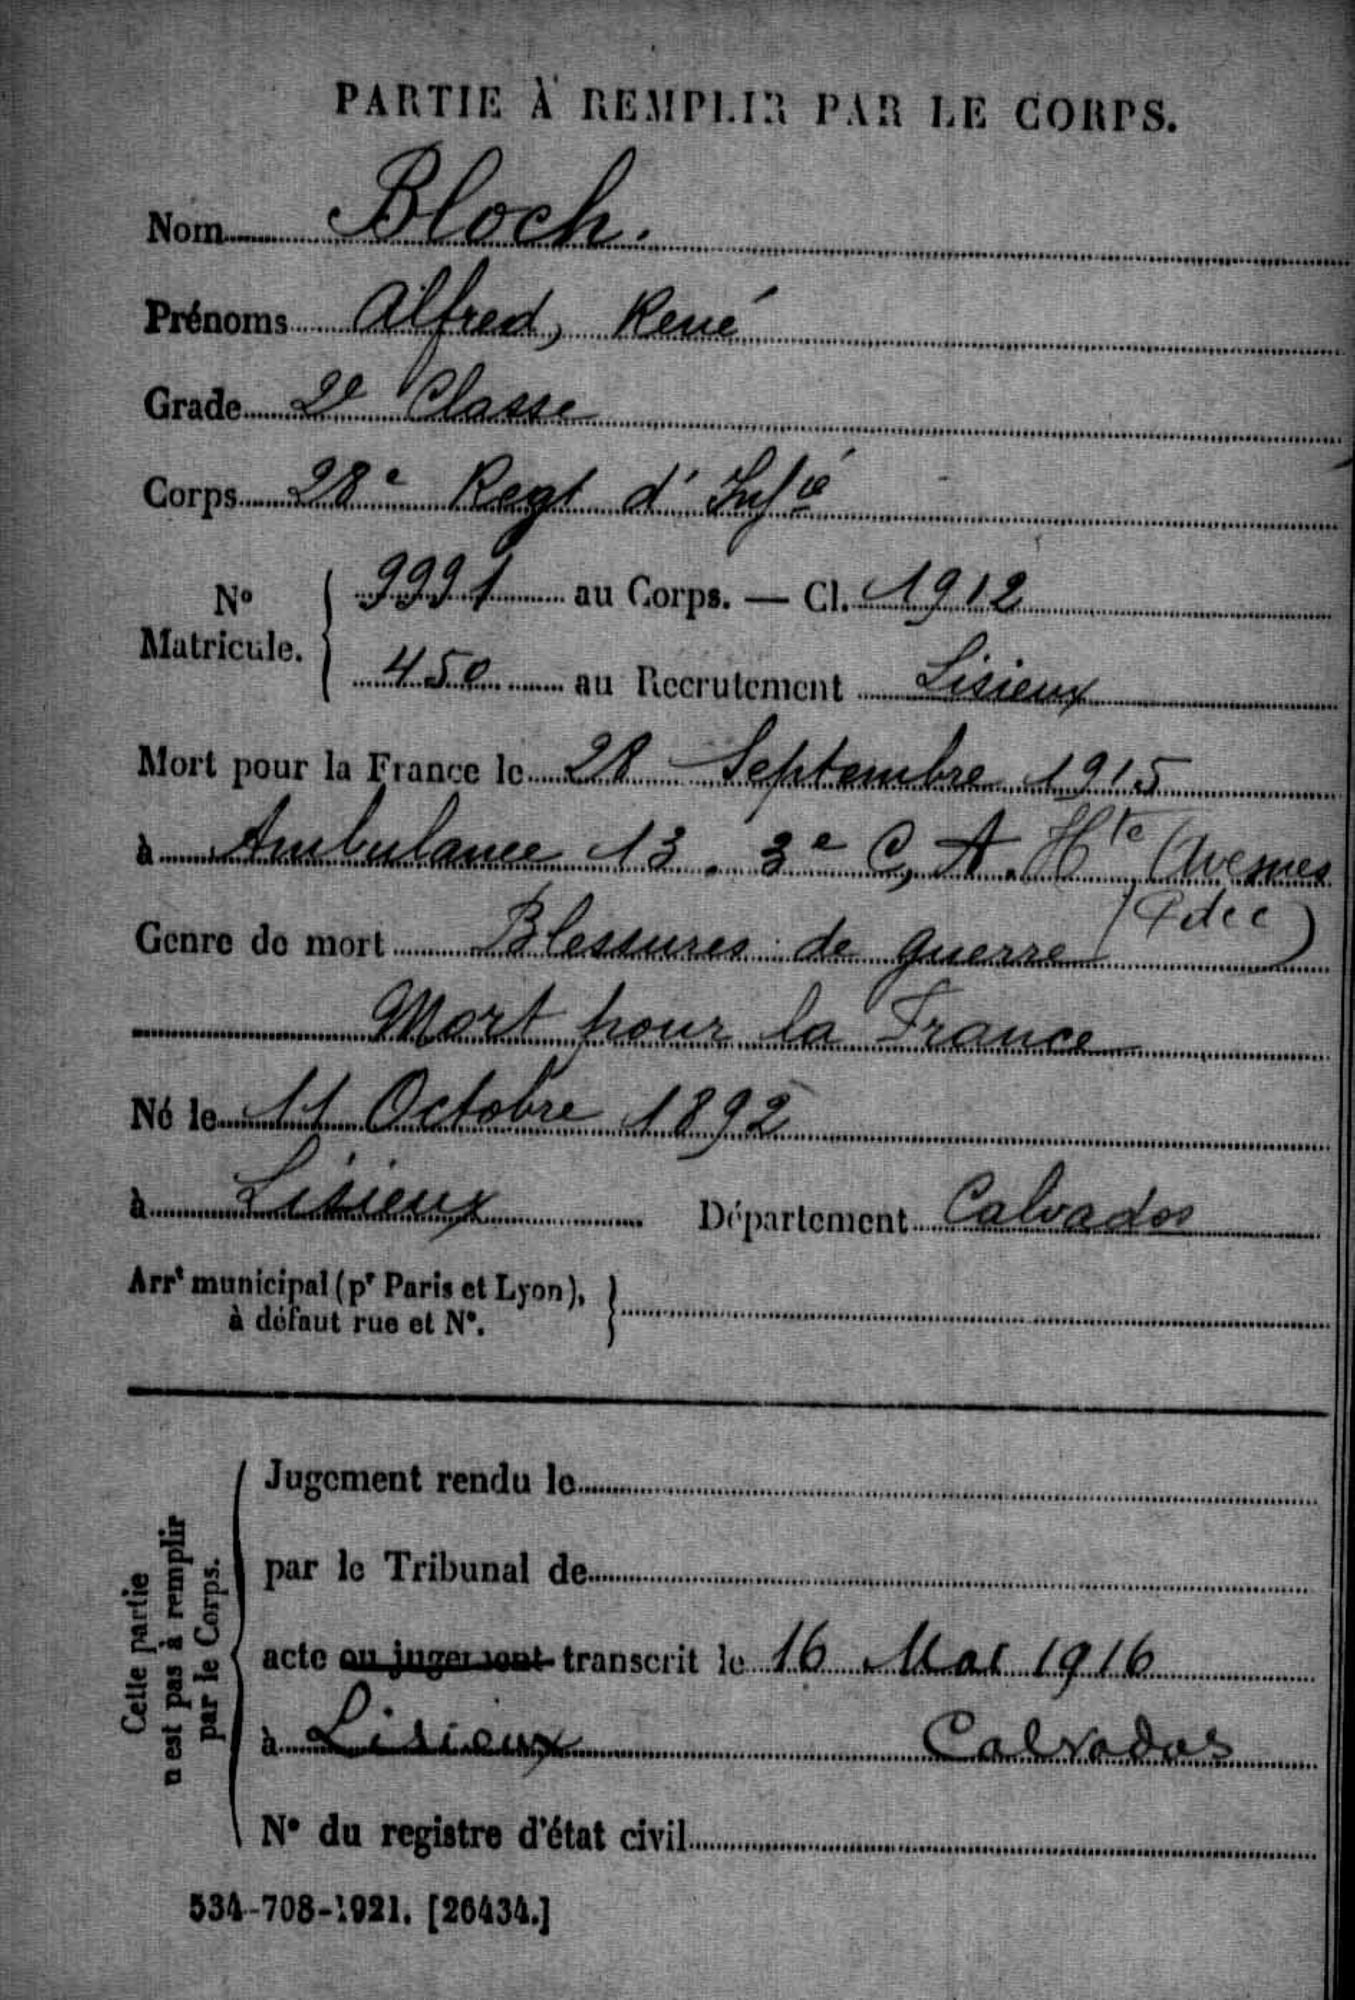 PARTIE À REMPLIR PAR LE CORPS.
Nom Bloch.
Prénoms Alfred, René
Grade 2e Classe
Corps 28e Regt d'Infie
No Matricule. 9991 au Corps. — Cl. 1912
450 au Recrutement Lisieux
Mort pour la France le 28 Septembre 1915
à Ambulance 13. 3e C, A. Hte Avesnes
(P de C)
Genre de mort Blessures de guerre
Mort pour la France
Né le 11 Octobre 1892
à Lisieux Département Calvados
Arrt municipal (pr Paris et Lyon),
à défaut rue et No.
Cette partie
n'est pas à remplir
par le Corps.
Jugement rendu le
par le Tribunal de
acte ou jugement transcrit le 16 Mai 1916
à Lisieux Calvados
No du registre d'état civil
534-708-1921. [26434.]